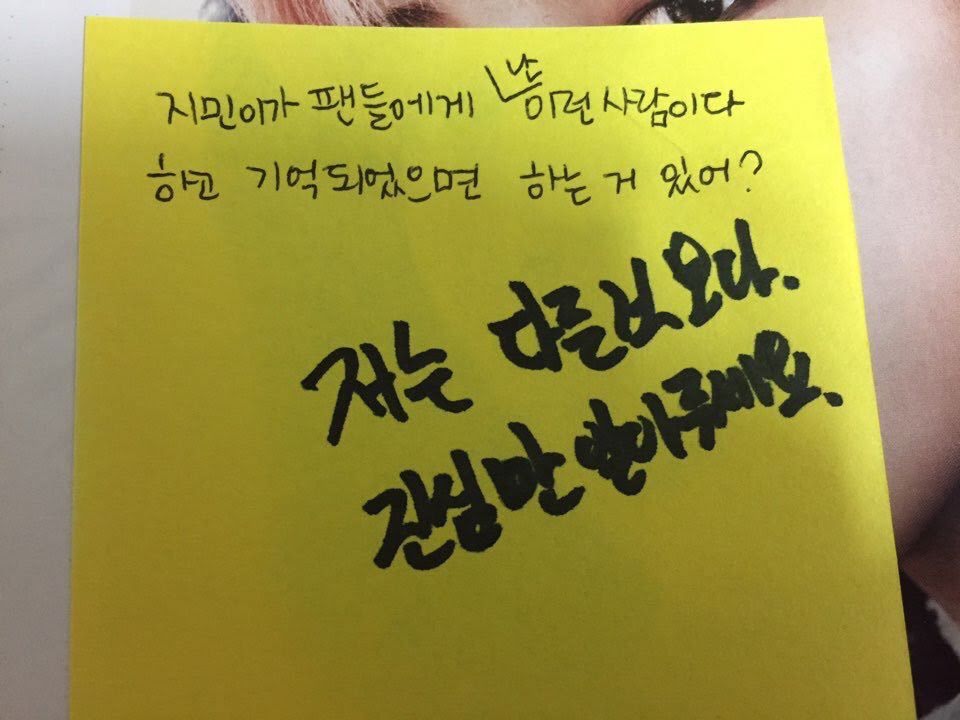 지민이가 팬들에게 난 이런 사람이다
하고 기억되었으면 하는 거 있어?
저는
진심만 알아주세요.